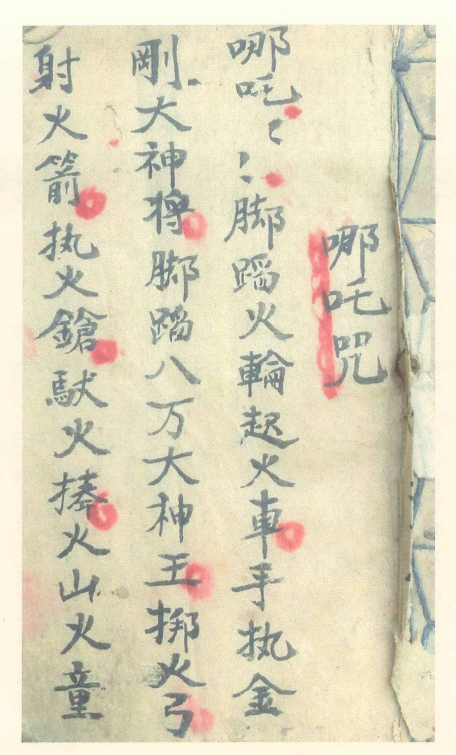 哪吒咒
哪吒ミミ脚蹈火輪起火車手执金
剛大神將脚蹈八万大神王挷火弓
射火箭执火鎗馱火捧火山火童